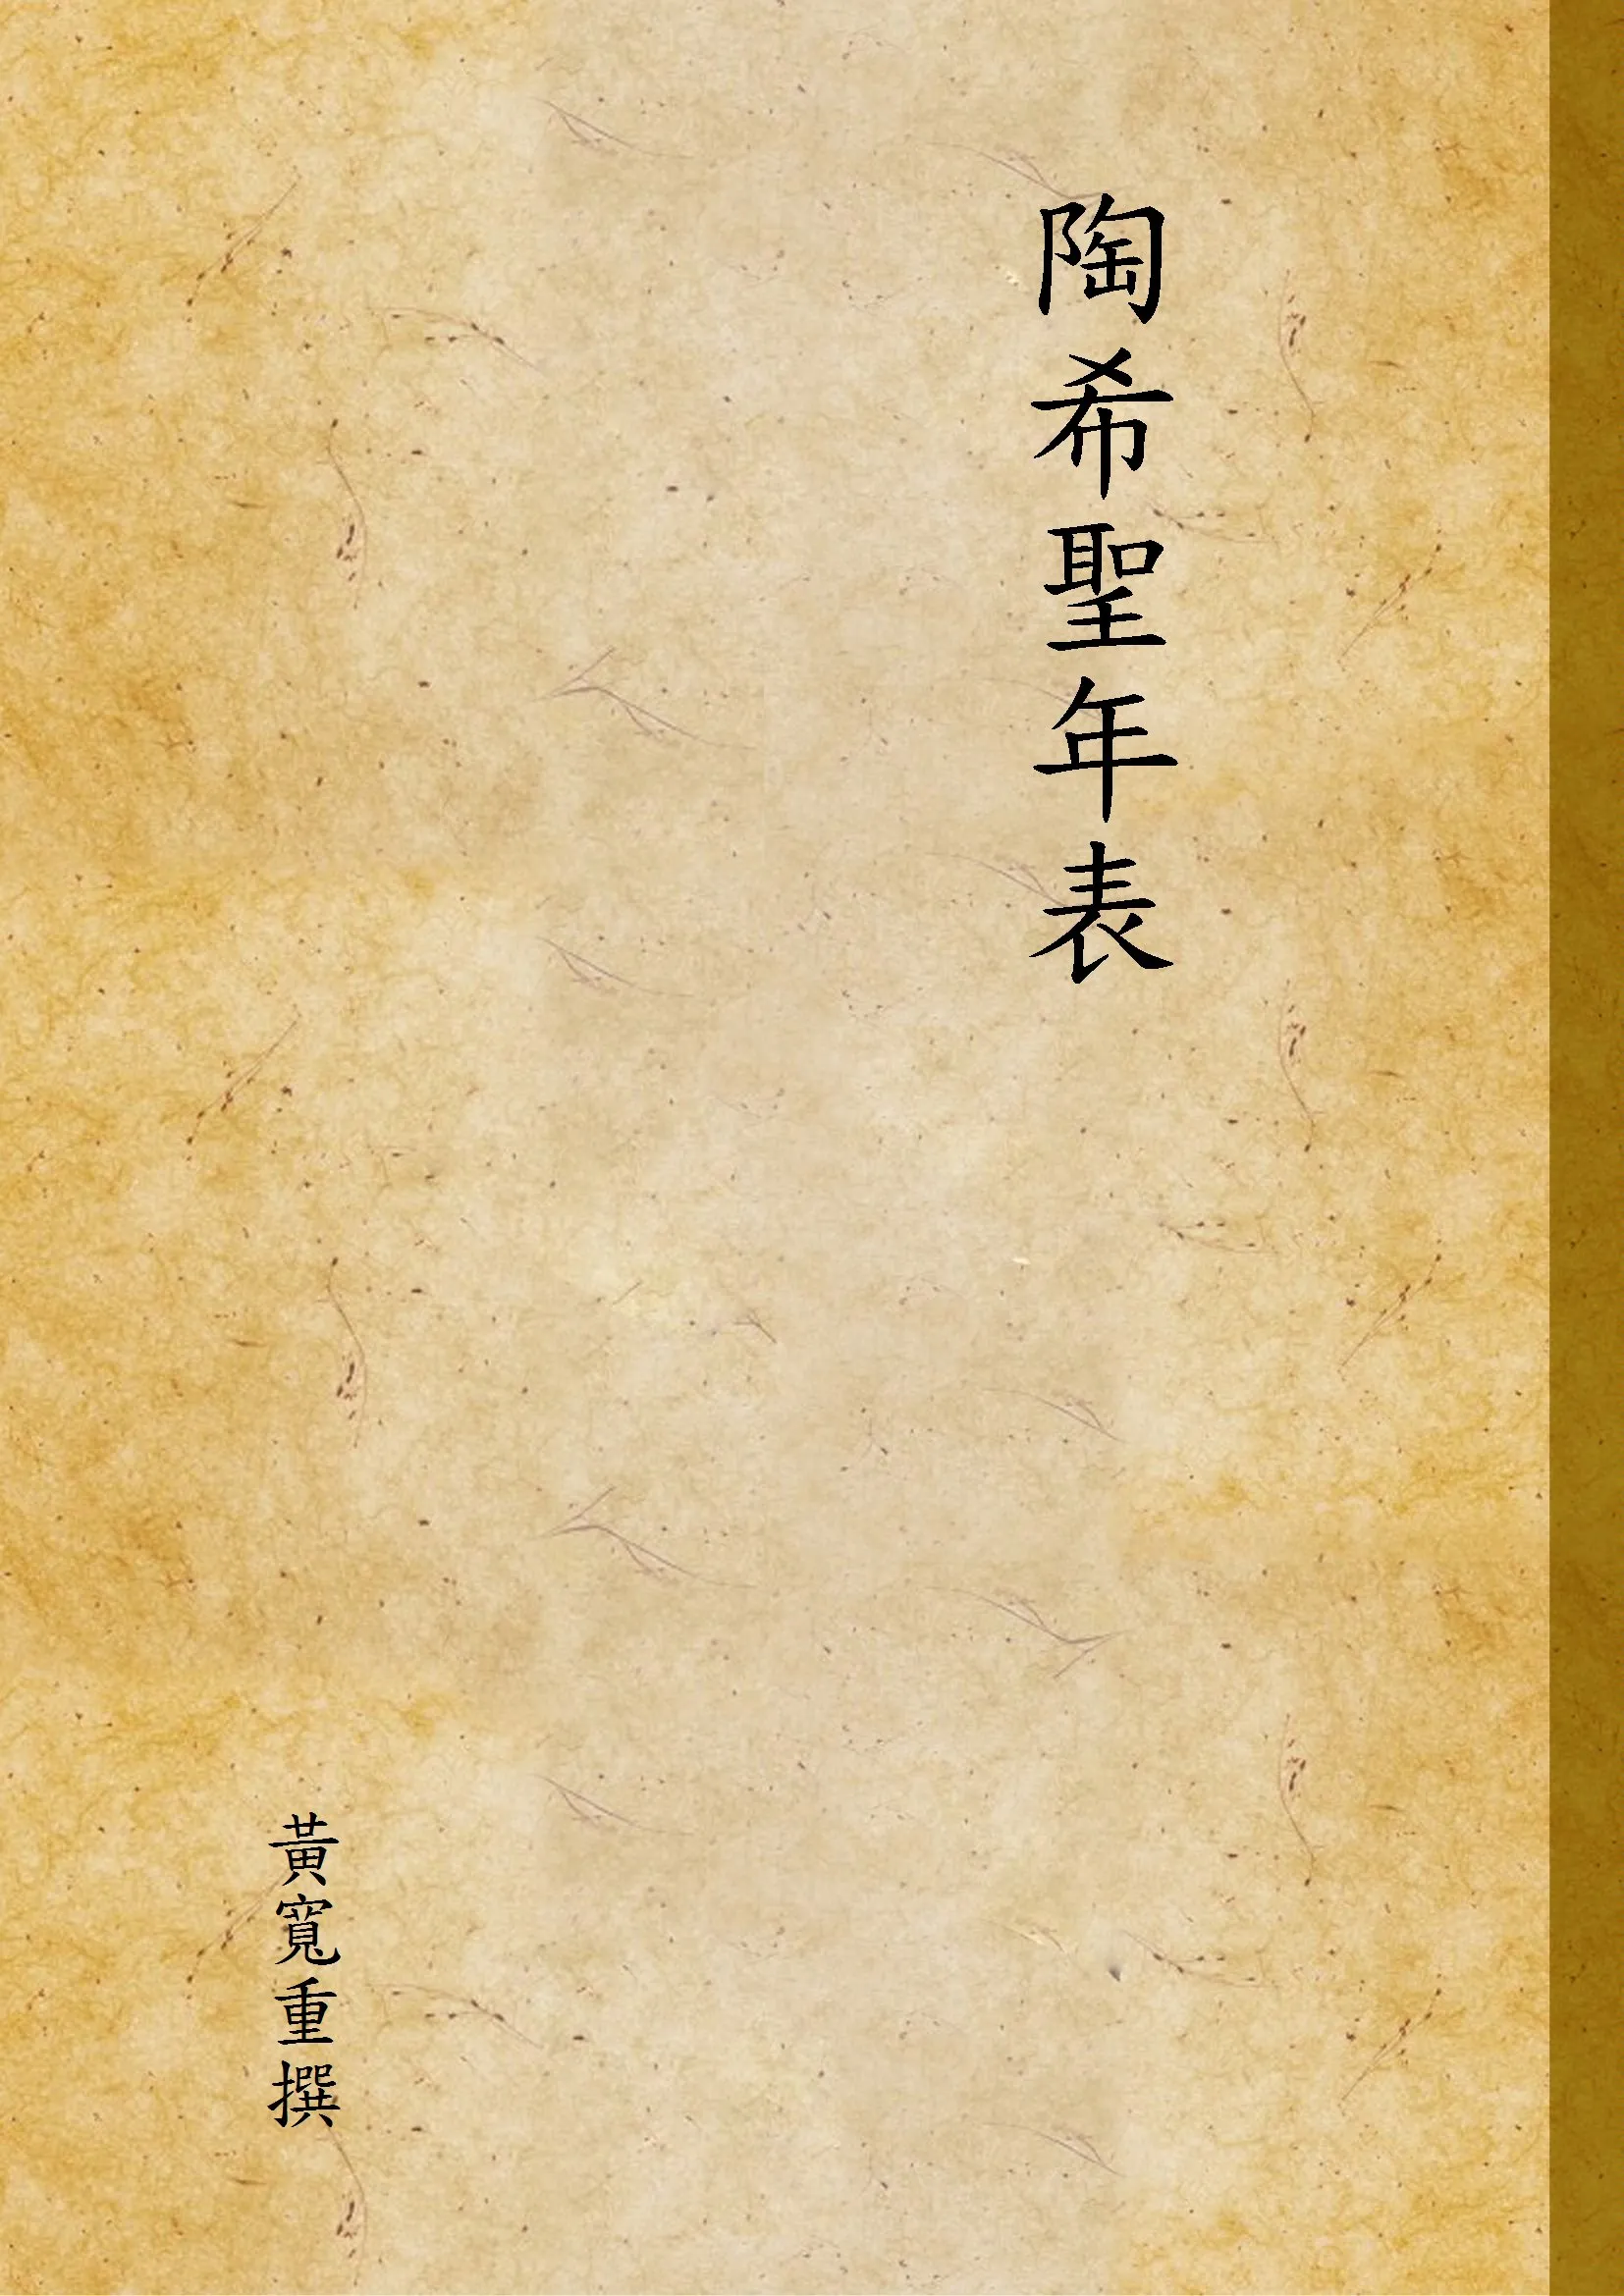 陶希聖年表
黃寬重撰